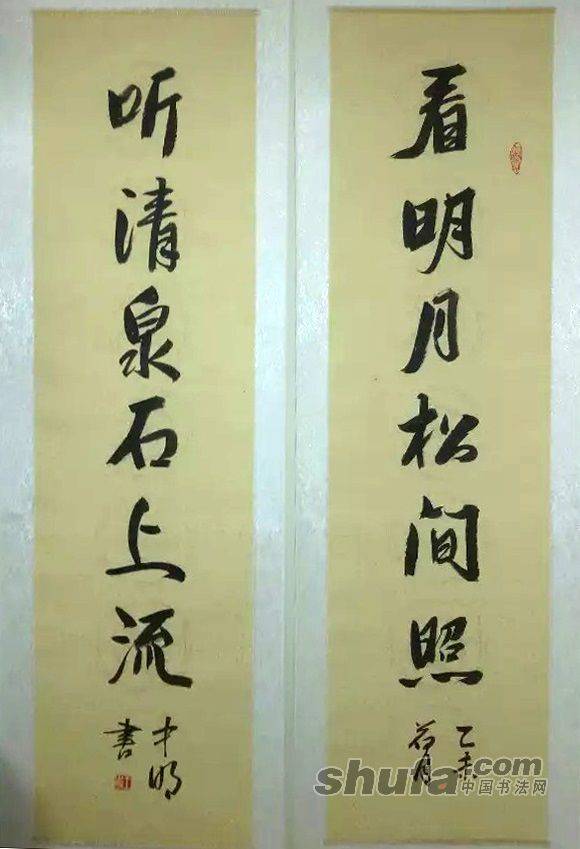 看明月松间照
乙未
荷月
听清泉石上流
才明
書
shufa.com
中国书法网